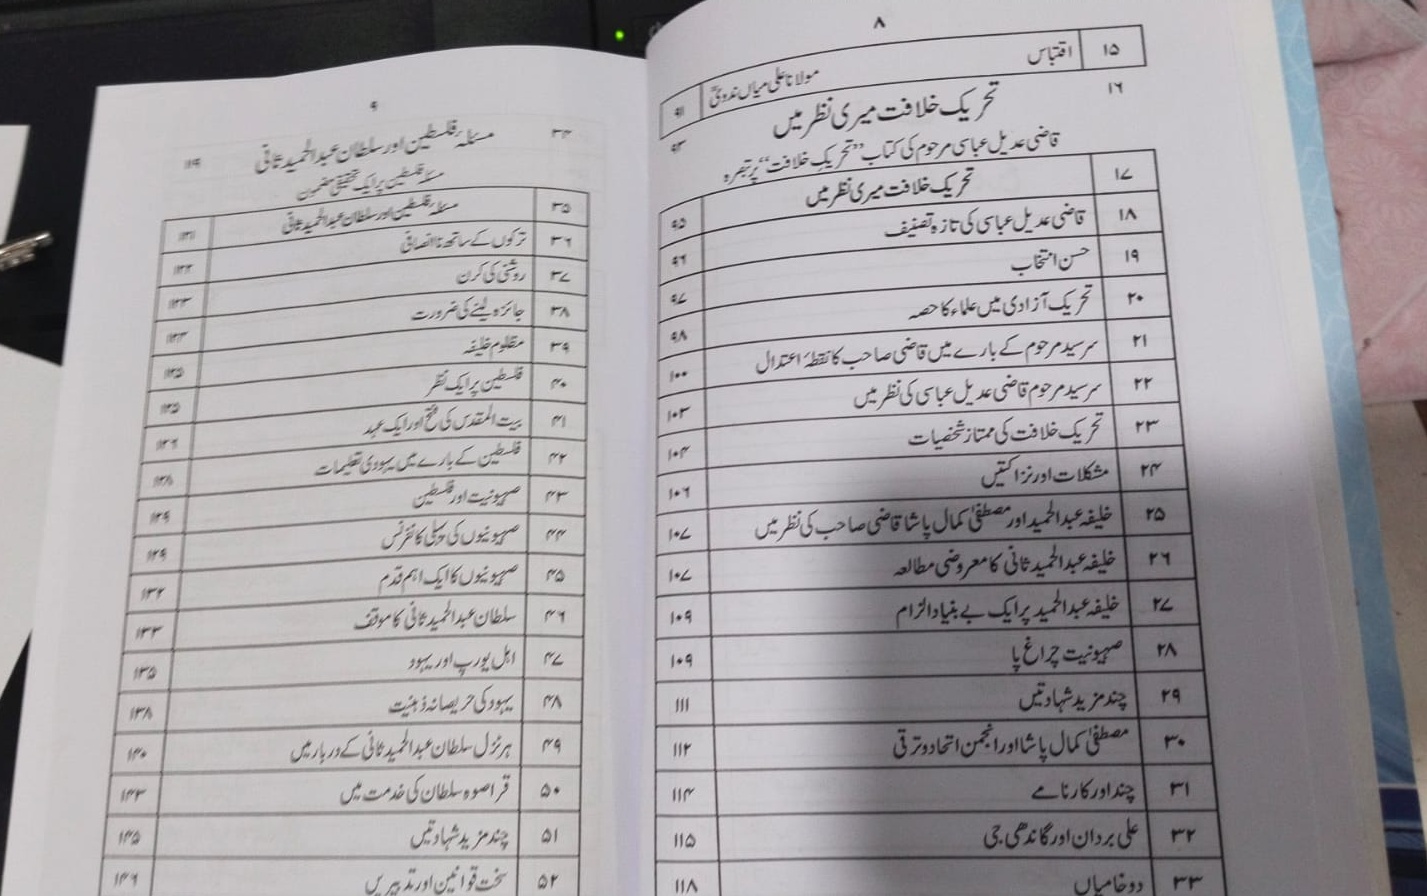 ۸
۱۵ اقتباس مولانا علی میاں ندویؒ ۹۱
۱۶ تحریک خلافت میری نظر میں ۹۳
قاضی عدیل عباسی مرحوم کی کتاب ”تحریکِ خلافت“ پر تبصرہ
۱۷ تحریک خلافت میری نظر میں ۹۵
۱۸ قاضی عدیل عباسی کی تازہ تصنیف ۹۶
۱۹ حسن انتخاب ۹۷
۲۰ تحریک آزادی میں علماء کا حصہ ۹۸
۲۱ سرسید مرحوم کے بارے میں قاضی صاحب کا نقطۂ اعتدال ۱۰۰
۲۲ سرسید مرحوم قاضی عدیل عباسی کی نظر میں ۱۰۳
۲۳ تحریک خلافت کی ممتاز شخصیات ۱۰۴
۲۴ مشکلات اور نزاکتیں ۱۰۶
۲۵ خلیفہ عبدالحمید اور مصطفیٰ کمال پاشا قاضی صاحب کی نظر میں ۱۰۷
۲۶ خلیفہ عبدالحمید ثانی کا معروضی مطالعہ ۱۰۷
۲۷ خلیفہ عبدالحمید پر ایک بے بنیاد الزام ۱۰۹
۲۸ صہیونیت چراغ پا ۱۰۹
۲۹ چند مزید شہادتیں ۱۱۱
۳۰ مصطفیٰ کمال پاشا اور انجمن اتحاد و ترقی ۱۱۲
۳۱ چند اور کارنامے ۱۱۴
۳۲ علی بردان اور گاندھی جی ۱۱۵
۳۳ دو خامیاں ۱۱۸
۹
۳۴ مسئلۂ فلسطین اور سلطان عبدالحمید ثانی ۱۱۹
مسئلہ فلسطین پر ایک تحقیقی مضمون
۳۵ مسئلۂ فلسطین اور سلطان عبدالحمید ثانی ۱۲۱
۳۶ ترکوں کے ساتھ ناانصافی ۱۲۲
۳۷ روشنی کی کرن ۱۲۳
۳۸ جائزہ لینے کی ضرورت ۱۲۳
۳۹ مظلوم خلیفہ ۱۲۵
۴۰ فلسطین پر ایک نظر ۱۲۵
۴۱ بیت المقدس کی فتح اور ایک عہد ۱۲۶
۴۲ فلسطین کے بارے میں یہودی تعلیمات ۱۲۸
۴۳ صہیونیت اور فلسطین ۱۲۹
۴۴ صہیونیوں کی پہلی کانفرنس ۱۲۹
۴۵ صہیونیوں کا ایک اہم قدم ۱۳۲
۴۶ سلطان عبدالحمید ثانی کا موقف ۱۳۳
۴۷ اہل یورپ اور یہود ۱۳۵
۴۸ یہود کی حریصانہ ذہنیت ۱۳۸
۴۹ ہرٹزل سلطان عبدالحمید ثانی کے دربار میں ۱۴۰
۵۰ قراصوہ سلطان کی خدمت میں ۱۴۳
۵۱ چند مزید شہادتیں ۱۴۵
۵۲ سخت قوانین اور تدبیریں ۱۴۶